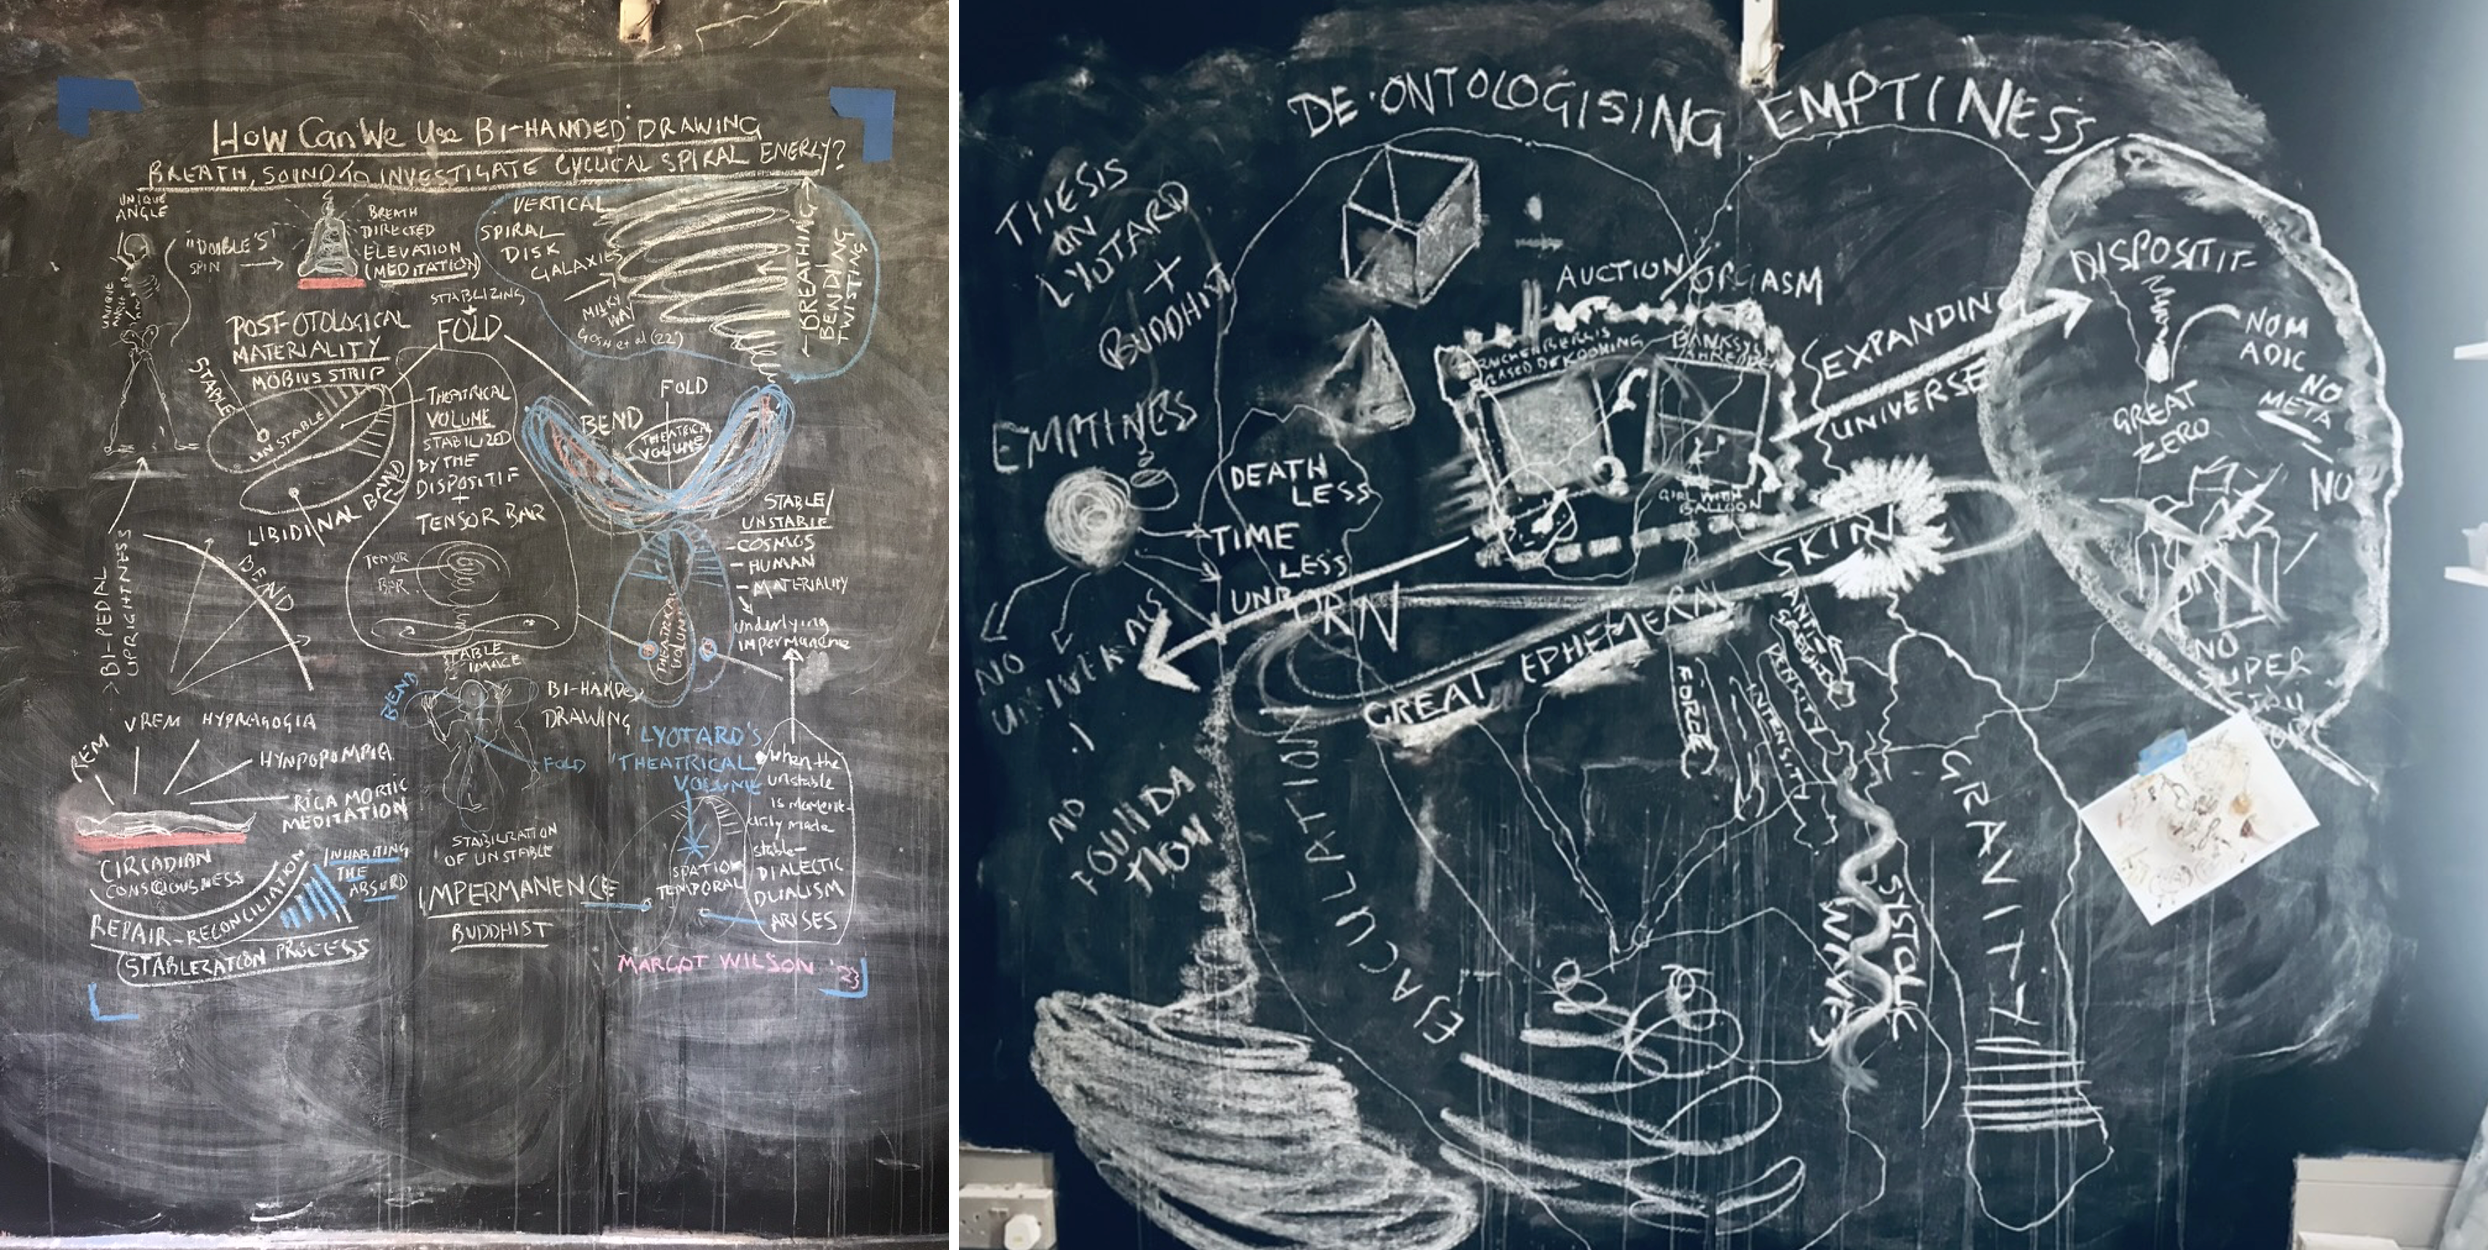 HOW CAN WE USE BI-HANDED DRAWING
BREATH, SOUND TO INVESTIGATE CYCLICAL SPIRAL ENERGY?
UNIQUE
ANGLE
"DOUBLE 'S'
SPIN
BREATH
DIRECTED
ELEVATION
(MEDITATION)
VERTICAL
SPIRAL
DISK
GALAXIES
MILKY
WAY
BREATHING
BENDING
TWISTING
STABILIZING
FOLD
POST-OTOLOGICAL
MATERIALITY
MÖBIUS STRIP
STABLE
UNSTABLE
LIBIDINAL BAND
THEATRICAL
VOLUME
STABILIZED
BY THE
DISPOSITIF
+
TENSOR BAR
TENSOR
BAR
FOLD
BEND
THEATRICAL
VOLUME
STABLE/
UNSTABLE
- COSMOS
- HUMAN
- MATERIALITY
underlying
impermanence
THEATRICAL
VOLUME
BI-PEDAL
UPRIGHTNESS
BEND
STABLE
IMAGE
BEND
BI-HANDED
DRAWING
FOLD
REM
VREM
HYPNAGOGIA
HYNPOPOMPIA
RIGA MORTIC
MEDITATION
CIRCADIAN
CONSCIOUSNESS
REPAIR-RECONCILIATION
STABLEZATION PROCESS
INHABITING
THE
ABSURD
STABILIZATION
OF UNSTABLE
IMPERMANENCE
BUDDHIST
LYOTARD'S
'THEATRICAL
VOLUME
SPATIO
TEMPORAL
When the
unstable
is moment-
arily made
stable-
DIALECTIC
DUALISM
ARISES
MARGOT WILSON '23
DE-ONTOLOGISING EMPTINESS
THESIS
ON
LYOTARD
+
BUDDHIST
EMPTINESS
DEATH
LESS
TIME
LESS
UNBORN
NO
UNIVERSALS
!
NO
FOUNDA
TION
AUCTION/ORGASM
BANKSY
GIRL WITH
BALLOON
EXPANDING
UNIVERSE
DISPOSITIF
NOM
ADIC
NO
META
NO
GREAT
ZERO
NO
SUPER
SKIN
GREAT EPHEMERAL
EJACULATION
FORCE
DENSITY
INTENSITY
SYSTOLE
WAVES
GRAVITY